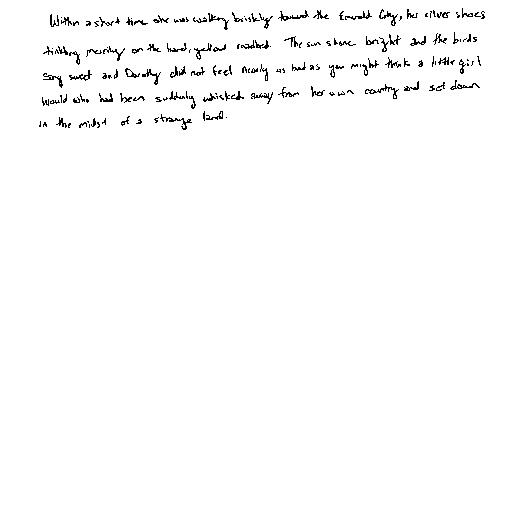 Within a short time she was walking briskly toward the Emerald City, her silver shoes
tinkling merrily on the hard, yellow roadbed. The sun shone bright and the birds
sang sweet and Dorothy did not feel nearly as bad as you might think a little girl
would who had been suddenly whisked away from her own country and set down
in the midst of a strange land.